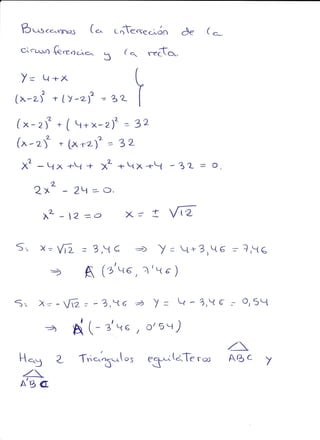 Buscamos la intersección de la
circunferencia y la recta
y = 4+x
(x-2)² + (y-2)² = 32
(x-2)² + (4+x-2)² = 32
(x-2)² + (x+2)² = 32
x² - 4x +4 + x² +4x +4 - 32 = 0.
2x² - 24 = 0.
x² - 12 = 0 x = ± √12
Si x = √12 = 3,46 ⇒ y = 4+3,46 = 7,46
⇒ A (3'46, 7'46)
Si x = -√12 = -3,46 ⇒ y = 4 - 3,46 = 0,54
⇒ A' (-3'46, 0'54)
Hay 2 Triángulos equiláTeros ABC y
A'BC